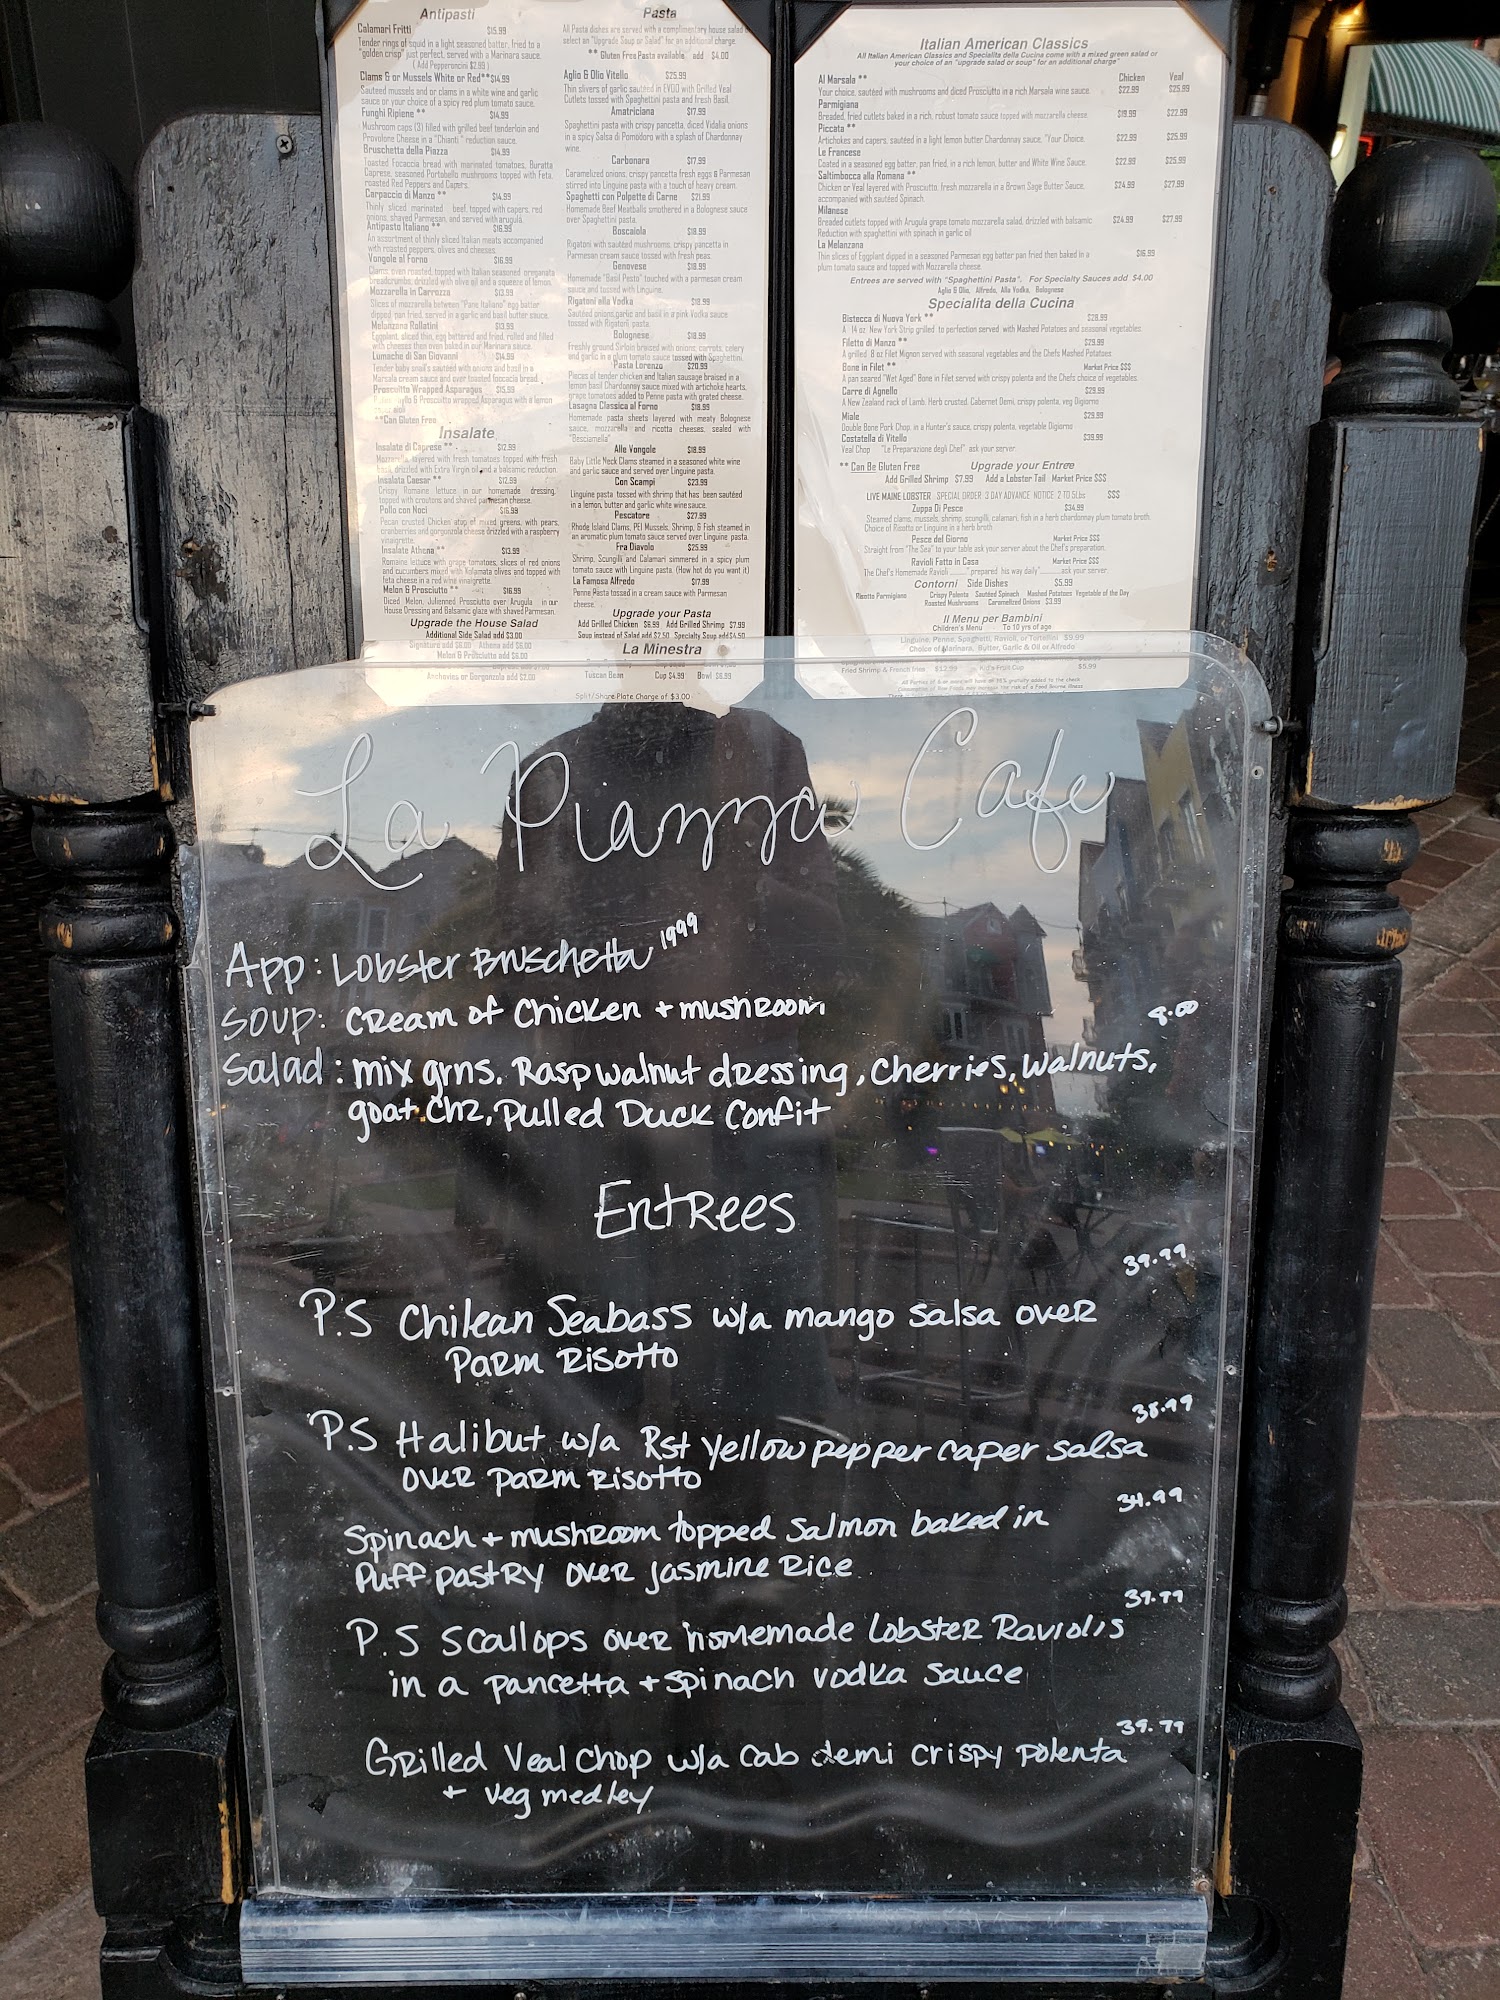 Antipasti
Calamari Fritti $15.99
Tender rings of squid in a light seasoned batter, fried to a
"golden crisp" just perfect, served with a Marinara sauce.
( Add Pepperoncini $2.99 )
Clams & or Mussels White or Red**$14.99
Sautéed mussels and or clams in a white wine and garlic
sauce or your choice of a spicy red plum tomato sauce.
Funghi Ripiene ** $14.99
Mushroom caps (3) filled with grilled beef tenderloin and
Provolone Cheese in a "Chianti" reduction sauce.
Bruschetta della Piazza $14.99
Toasted Focaccia bread with marinated tomatoes, Buratta
Caprese, seasoned Portabello mushrooms topped with Feta,
roasted Red Peppers and Capers.
Carpaccio di Manzo ** $14.99
Thinly sliced marinated beef, topped with capers, red
onions, shaved Parmesan, and served with arugula.
Antipasto Italiano ** $16.99
An assortment of thinly sliced Italian meats accompanied
with roasted peppers, olives and cheeses.
Vongole al Forno $16.99
Clams, oven roasted, topped with Italian seasoned oreganata
breadcrumbs, drizzled with olive oil and a squeeze of lemon.
Mozzarella in Carrozza $13.99
Slices of mozzarella between "Pane Italiano" egg batter
dipped pan fried, served in a garlic and basil butter sauce.
Melanzana Rollatini $13.99
Eggplant, sliced thin, egg battered and fried, rolled and filled
with cheeses then oven baked in our Marinara sauce.
Lumache di San Giovanni $14.99
Tender baby snail's sautéed with onions and basil in a
Marsala cream sauce and over toasted foccacia bread.
Prosciutto Wrapped Asparagus $15.99
& Prosciutto wrapped Asparagus with a lemon
**Can Gluten Free
Insalate
Insalate di Caprese ** $12.99
Mozzarella layered with fresh tomatoes topped with fresh
basil, drizzled with Extra Virgin oil and a balsamic reduction.
Insalata Caesar ** $12.99
Crispy Romaine lettuce in our homemade dressing,
topped with croutons and shaved parmesan cheese.
Pollo con Noci $16.99
Pecan crusted Chicken atop of mixed greens, with pears,
cranberries and gorgonzola cheese drizzled with a raspberry
vinaigrette.
Insalate Athena ** $13.99
Romaine lettuce with grape tomatoes, slices of red onions
and cucumbers mixed with Kalamata olives and topped with
feta cheese in a red wine vinaigrette.
Melon & Prosciutto ** $16.99
Diced Melon, Julienned Prosciutto over Arugula in our
House Dressing and Balsamic glaze with shaved Parmesan.
Upgrade the House Salad
Additional Side Salad add $3.00
Signature add $6.00 Athena add $6.00
Melon & Prosciutto add $6.00
Anchovies or Gorgonzola add $2.00
Pasta
All Pasta dishes are served with a complimentary house salad or
select an "Upgrade Soup or Salad" for an additional charge.
** Gluten Free Pasta available add $4.00
Aglio & Olio Vitello $25.99
Thin slivers of garlic sautéed in EVOO with Grilled Veal
Cutlets tossed with Spaghettini pasta and fresh Basil.
Amatriciana $17.99
Spaghettini pasta with crispy pancetta, diced Vidalia onions
in a spicy Salsa di Pomodoro with a splash of Chardonnay
wine.
Carbonara $17.99
Caramelized onions, crispy pancetta fresh eggs & Parmesan
stirred into Linguine pasta with a touch of heavy cream.
Spaghetti con Polpette di Carne $21.99
Homemade Beef Meatballs smothered in a Bolognese sauce
over Spaghettini pasta.
Boscaiola $18.99
Rigatoni with sautéed mushrooms, crispy pancetta in
Parmesan cream sauce tossed with fresh peas.
Genovese $18.99
Homemade "Basil Pesto" touched with a parmesan cream
sauce and tossed with Linguine.
Rigatoni alla Vodka $18.99
Sautéed onions, garlic and basil in a pink Vodka sauce
tossed with Rigatoni pasta.
Bolognese $18.99
Freshly ground Sirloin braised with onions, carrots, celery
and garlic in a plum tomato sauce tossed with Spaghettini.
Pasta Lorenzo $20.99
Pieces of tender chicken and Italian sausage braised in a
lemon basil Chardonnay sauce mixed with artichoke hearts,
grape tomatoes added to Penne pasta with grated cheese.
Lasagna Classica al Forno $18.99
Homemade pasta sheets layered with meaty Bolognese
sauce, mozzarella and ricotta cheeses, sealed with
"Besciamella"
Alle Vongole $18.99
Baby Little Neck Clams steamed in a seasoned white wine
and garlic sauce and served over Linguine pasta.
Con Scampi $23.99
Linguine pasta tossed with shrimp that has been sautéed
in a lemon, butter and garlic white wine sauce.
Pescatore $27.99
Rhode Island Clams, PEI Mussels, Shrimp, & Fish steamed in
an aromatic plum tomato sauce served over Linguine pasta.
Fra Diavolo $25.99
Shrimp, Scungilli and Calamari simmered in a spicy plum
tomato sauce with Linguine pasta. (How hot do you want it)
La Famosa Alfredo $17.99
Penne Pasta tossed in a cream sauce with Parmesan
cheese.
Upgrade your Pasta
Add Grilled Chicken $6.99 Add Grilled Shrimp $7.99
Soup instead of Salad add $2.50 Specialty Soup add $4.50
La Minestra
Tuscan Bean Cup $4.99 Bowl $6.99
Split/Share Plate Charge of $3.00
Italian American Classics
All Italian American Classics and Specialita della Cucina come with a mixed green salad or
your choice of an "upgrade salad or soup" for an additional charge"
Chicken Veal
Al Marsala **
Your choice, sautéed with mushrooms and diced Prosciutto in a rich Marsala wine sauce. $22.99 $25.99
Parmigiana
Breaded, fried cutlets baked in a rich, robust tomato sauce topped with mozzarella cheese. $19.99 $22.99
Piccata **
Artichokes and capers, sautéed in a light lemon butter Chardonnay sauce, "Your Choice. $22.99 $25.99
Le Francese
Coated in a seasoned egg batter, pan fried, in a rich lemon, butter and White Wine Sauce. $22.99 $25.99
Saltimbocca alla Romana **
Chicken or Veal layered with Prosciutto, fresh mozzarella in a Brown Sage Butter Sauce, $24.99 $27.99
accompanied with sautéed Spinach.
Milanese
Breaded cutlets topped with Arugula grape tomato mozzarella salad, drizzled with balsamic $24.99 $27.99
Reduction with spaghettini with spinach in garlic oil
La Melanzana
Thin slices of Eggplant dipped in a seasoned Parmesan egg batter pan fried then baked in a $16.99
plum tomato sauce and topped with Mozzarella cheese.
Entrees are served with "Spaghettini Pasta". For Specialty Sauces add $4.00
Aglio & Olio, Alfredo, Alla Vodka, Bolognese
Specialita della Cucina
Bistecca di Nuova York ** $28.99
A 14 oz New York Strip grilled to perfection served with Mashed Potatoes and seasonal vegetables.
Filetto di Manzo ** $29.99
A grilled 8 oz Filet Mignon served with seasonal vegetables and the Chefs Mashed Potatoes
Bone in Filet ** Market Price $$$
A pan seared "Wet Aged" Bone in Filet served with crispy polenta and the Chefs choice of vegetables.
Carre di Agnello $29.99
A New Zealand rack of Lamb. Herb crusted, Cabernet Demi, crispy polenta, veg Digiorno
Miale $29.99
Double Bone Pork Chop, in a Hunter's sauce, crispy polenta, vegetable Digiorno
Costatella di Vitello $39.99
Veal Chop "Le Preparazione degli Chef" ask your server.
** Can Be Gluten Free Upgrade your Entree
Add Grilled Shrimp $7.99 Add a Lobster Tail Market Price $$$
LIVE MAINE LOBSTER SPECIAL ORDER 3 DAY ADVANCE NOTICE 2 TO 5Lbs $$$
Zuppa Di Pesce $34.99
Steamed clams, mussels, shrimp, scungilli, calamari, fish in a herb chardonnay plum tomato broth.
Choice of Risotto or Linguine in a herb broth
Pesce del Giorno Market Price $$$
Straight from "The Sea" to your table ask your server about the Chef's preparation.
Ravioli Fatto in Casa Market Price $$$
The Chef's Homemade Ravioli ........."prepared his way daily"...........ask your server.
Contorni Side Dishes $5.99
Risotto Parmigiano Crispy Polenta Sautéed Spinach Mashed Potatoes Vegetable of the Day
Roasted Mushrooms Caramelized Onions $3.99
Il Menu per Bambini
Children's Menu To 10 yrs of age
Linguine, Penne, Spaghetti, Ravioli, or Tortellini $9.99
Choice of Marinara, Butter, Garlic & Oil or Alfredo
Fried Shrimp & French fries $12.99 Kid's Fruit Cup $5.99
La Piazza Cafe
App: Lobster Bruschetta 19.99
Soup: Cream of Chicken + mushroom 8.00
Salad: mix grns. Rasp walnut dressing, Cherries, Walnuts,
goat chz, Pulled Duck Confit
Entrees
39.99
P.S Chilean Seabass w/a mango salsa over
Parm Risotto
38.99
P.S Halibut w/a Rst yellow pepper caper salsa
over parm risotto
34.99
Spinach + mushroom topped Salmon baked in
Puff pastry over jasmine Rice
39.99
P.S Scallops over homemade Lobster Raviolis
in a pancetta + spinach vodka sauce
39.99
Grilled Veal Chop w/a Cab demi crispy polenta
+ veg medley